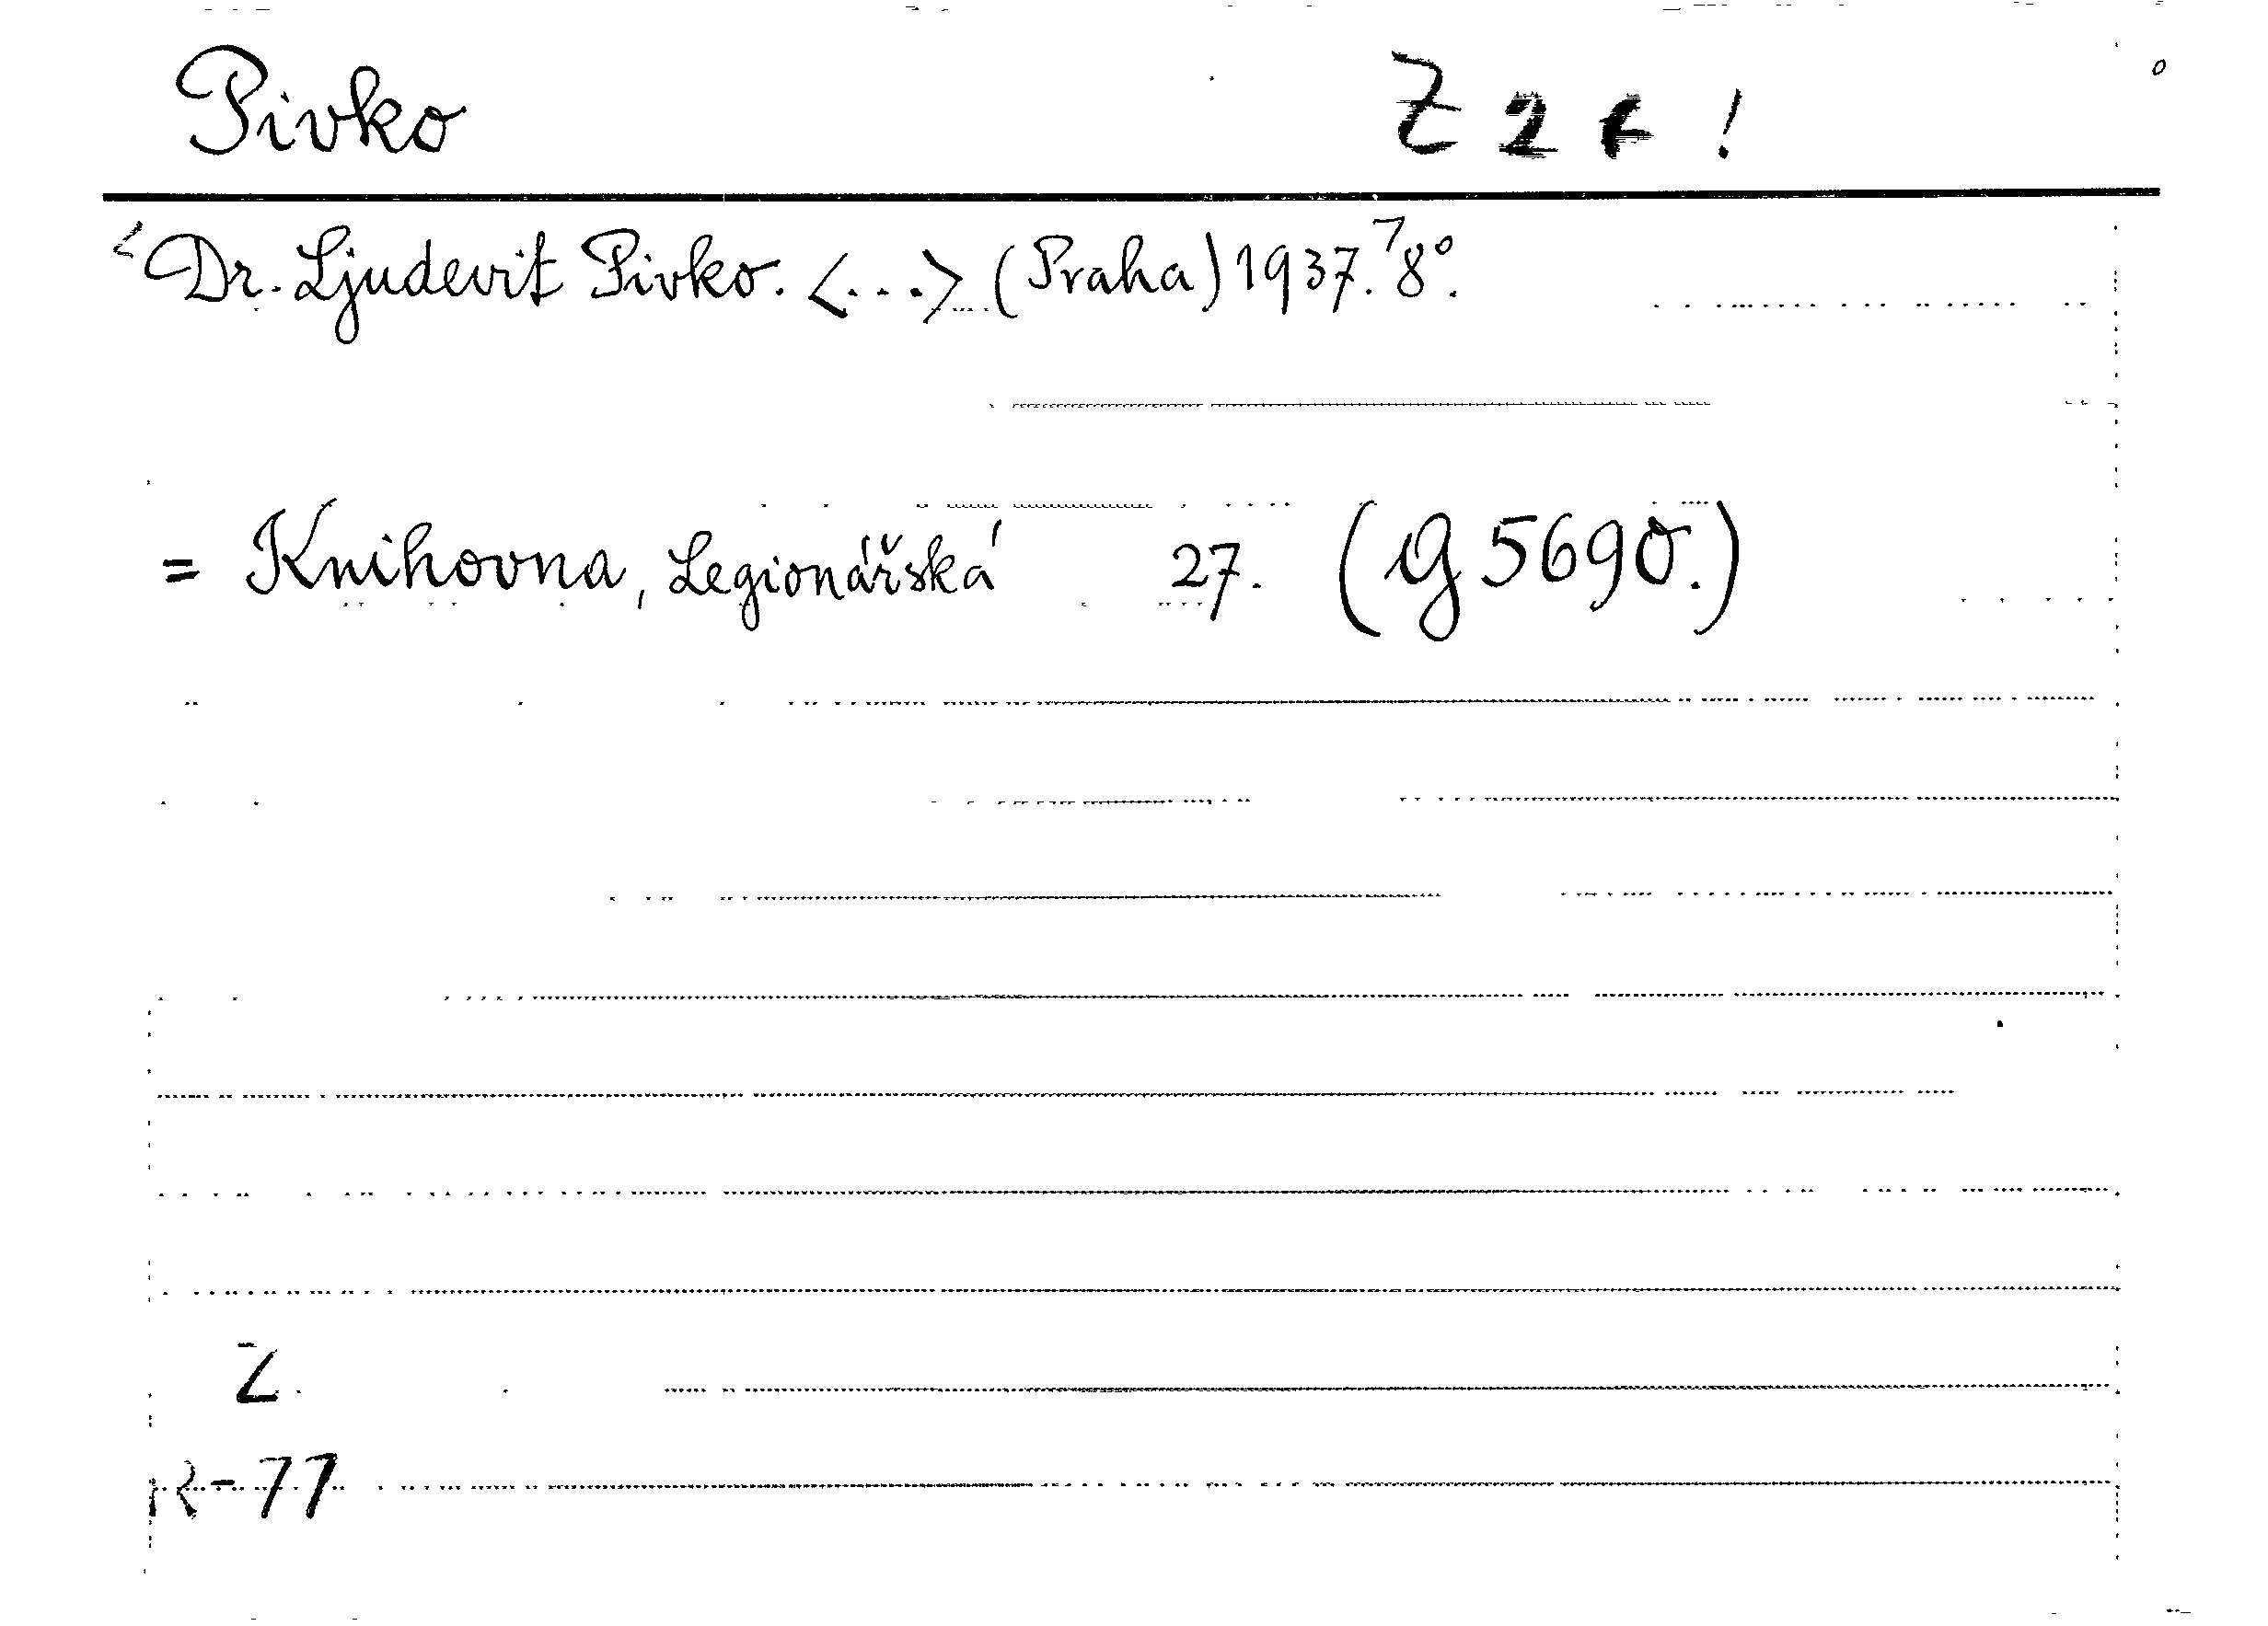 Pivko
Dr. Ljudevit Pivko. <...> (Praha) 1937. 8°.
= Knihovna, Legionářská 27. (G 5690.)
Z
R-77